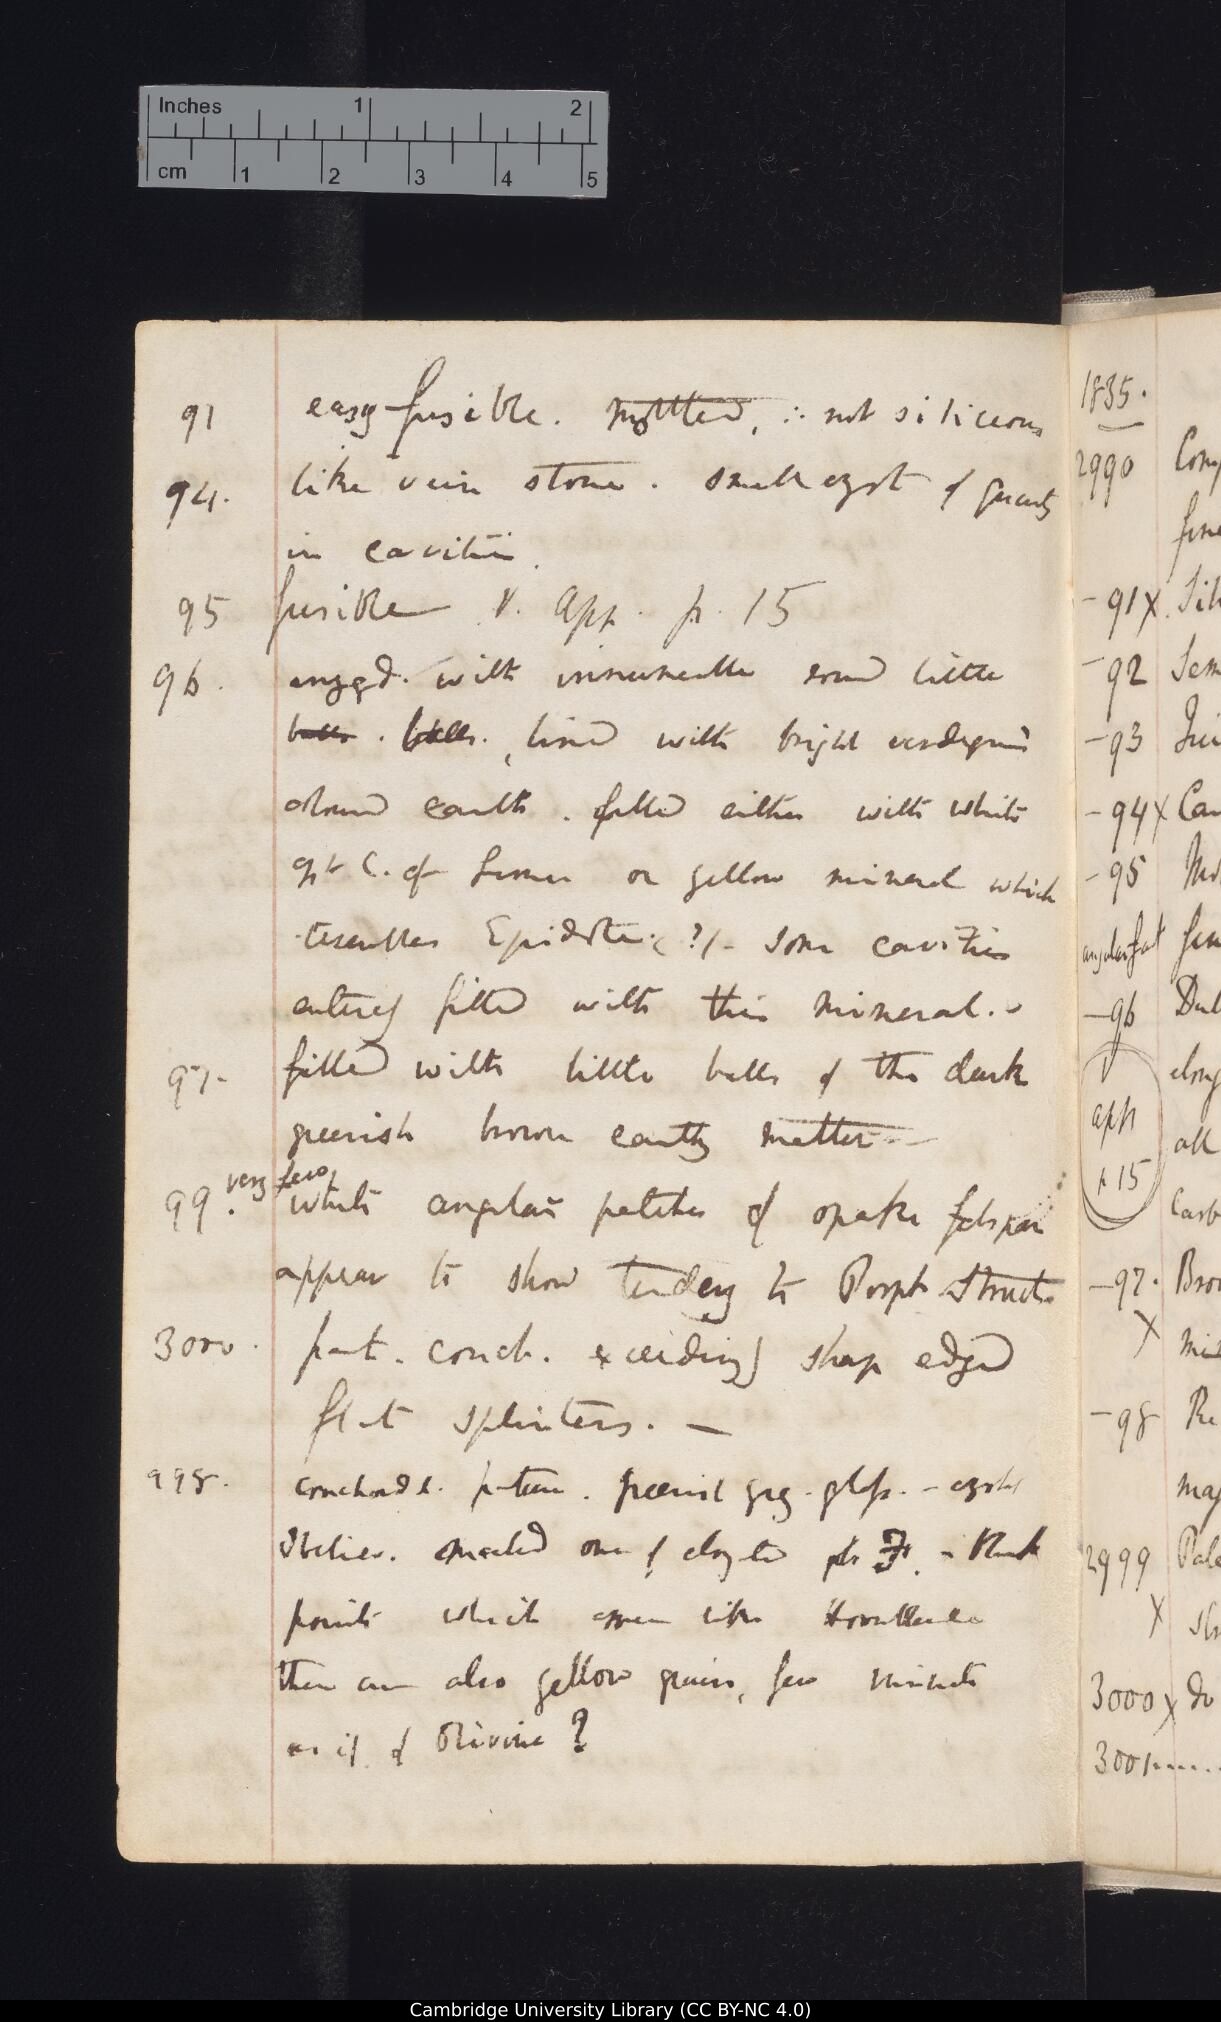 Inches 1 2
cm 1 2 3 4 5
91 easy fusible. mottled, ∴ not siliceous
94. like vein stone. small cryst of quartz
in cavities.
95 fusible V. App. p. 15
96. amygd. with innumerable round little
balls. balls., lined with bright verdigris
colored earth. filled either with white
C. of Lime or yellow mineral which
resembles Epidote (?) - Some cavities
entirely filled with this mineral.
97. filled with little balls of the dark
greenish brown earthy matter —
very few,
99. white angular patches of opake felspar
appear to show tendency to Porph Struct
3000. fract. conch. exceedingly sharp edged
flat splinters. —
998. conchoidal. fracture. greenish grey. gloss. - cryst
one of elongated - Black
points which seem like Hornblende
there are also yellow grains, few minute
as if of Olivine?
1835.
2990
- 91 X.
- 92
- 93
- 94 X
- 95
- 96
V
app
p 15
- 97.
X
- 98
2999
X
3000 X do
3001....
Cambridge University Library (CC BY-NC 4.0)